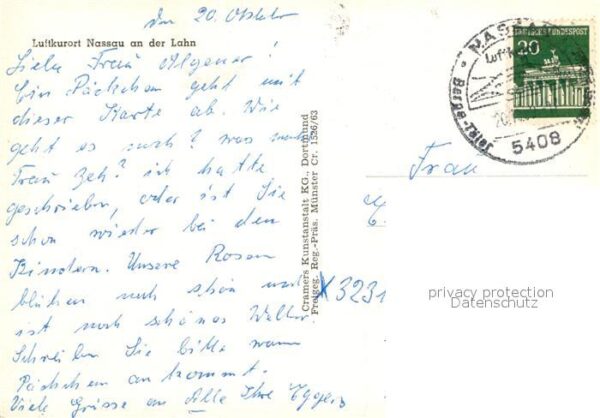 den 20. Oktober
Luftkurort Nassau an der Lahn
Liebe Frau Algener!
Ein Päckchen geht mit
dieser Karte ab. Wie
geht es euch? was macht
Frau Zeh? ich hatte
geschrieben, oder ist Sie
schon wieder bei den
Kindern. Unsere Rosen
blühen noch schön und
ist noch schönes Wetter
Schreiben Sie bitte wann
Päckchen ankommt.
Viele Grüsse an Alle Ihre
Cramers Kunstanstalt KG., Dortmund
Freigeg. Reg.-Präs. Münster Cr. 1526/63
NASSAU
Luft
Berge - Täler
20.
5408
DEUTSCHE BUNDESPOST
20
Frau
X 3231
privacy protection
Datenschutz